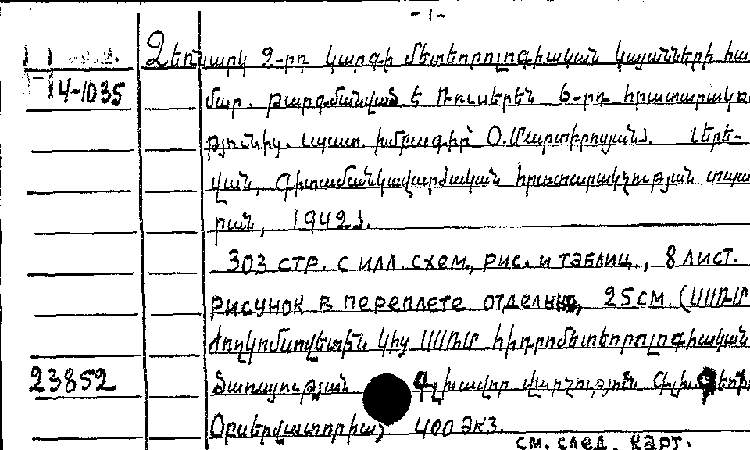 -1-
Ձեռնարկ 2-րդ կարգի մետեորոլոգիական կայանների հա
4-1035 մար. թարգմանված է Ռուսերեն 6-րդ հրատարակ
թյունից. պատ. խմբագիր՝ Օ.Մարտիրոսյան. Երե-
վան, գիտամանկավարժական հրատարակչության տպա
րան, 1942.
303 стр. с илл. схем., рис. и таблиц, 8 лист.
рисунок в переплете отдельн, 25 см (ՍՍՌՄ
Ժողկոմսովետին կից ՍՍՌՄ հիդրոմետեորոլոգիական
23852 Ծառայության Գլխավոր վարչություն
Օբսերվատորիա) 400 экз.
см. след. карт.